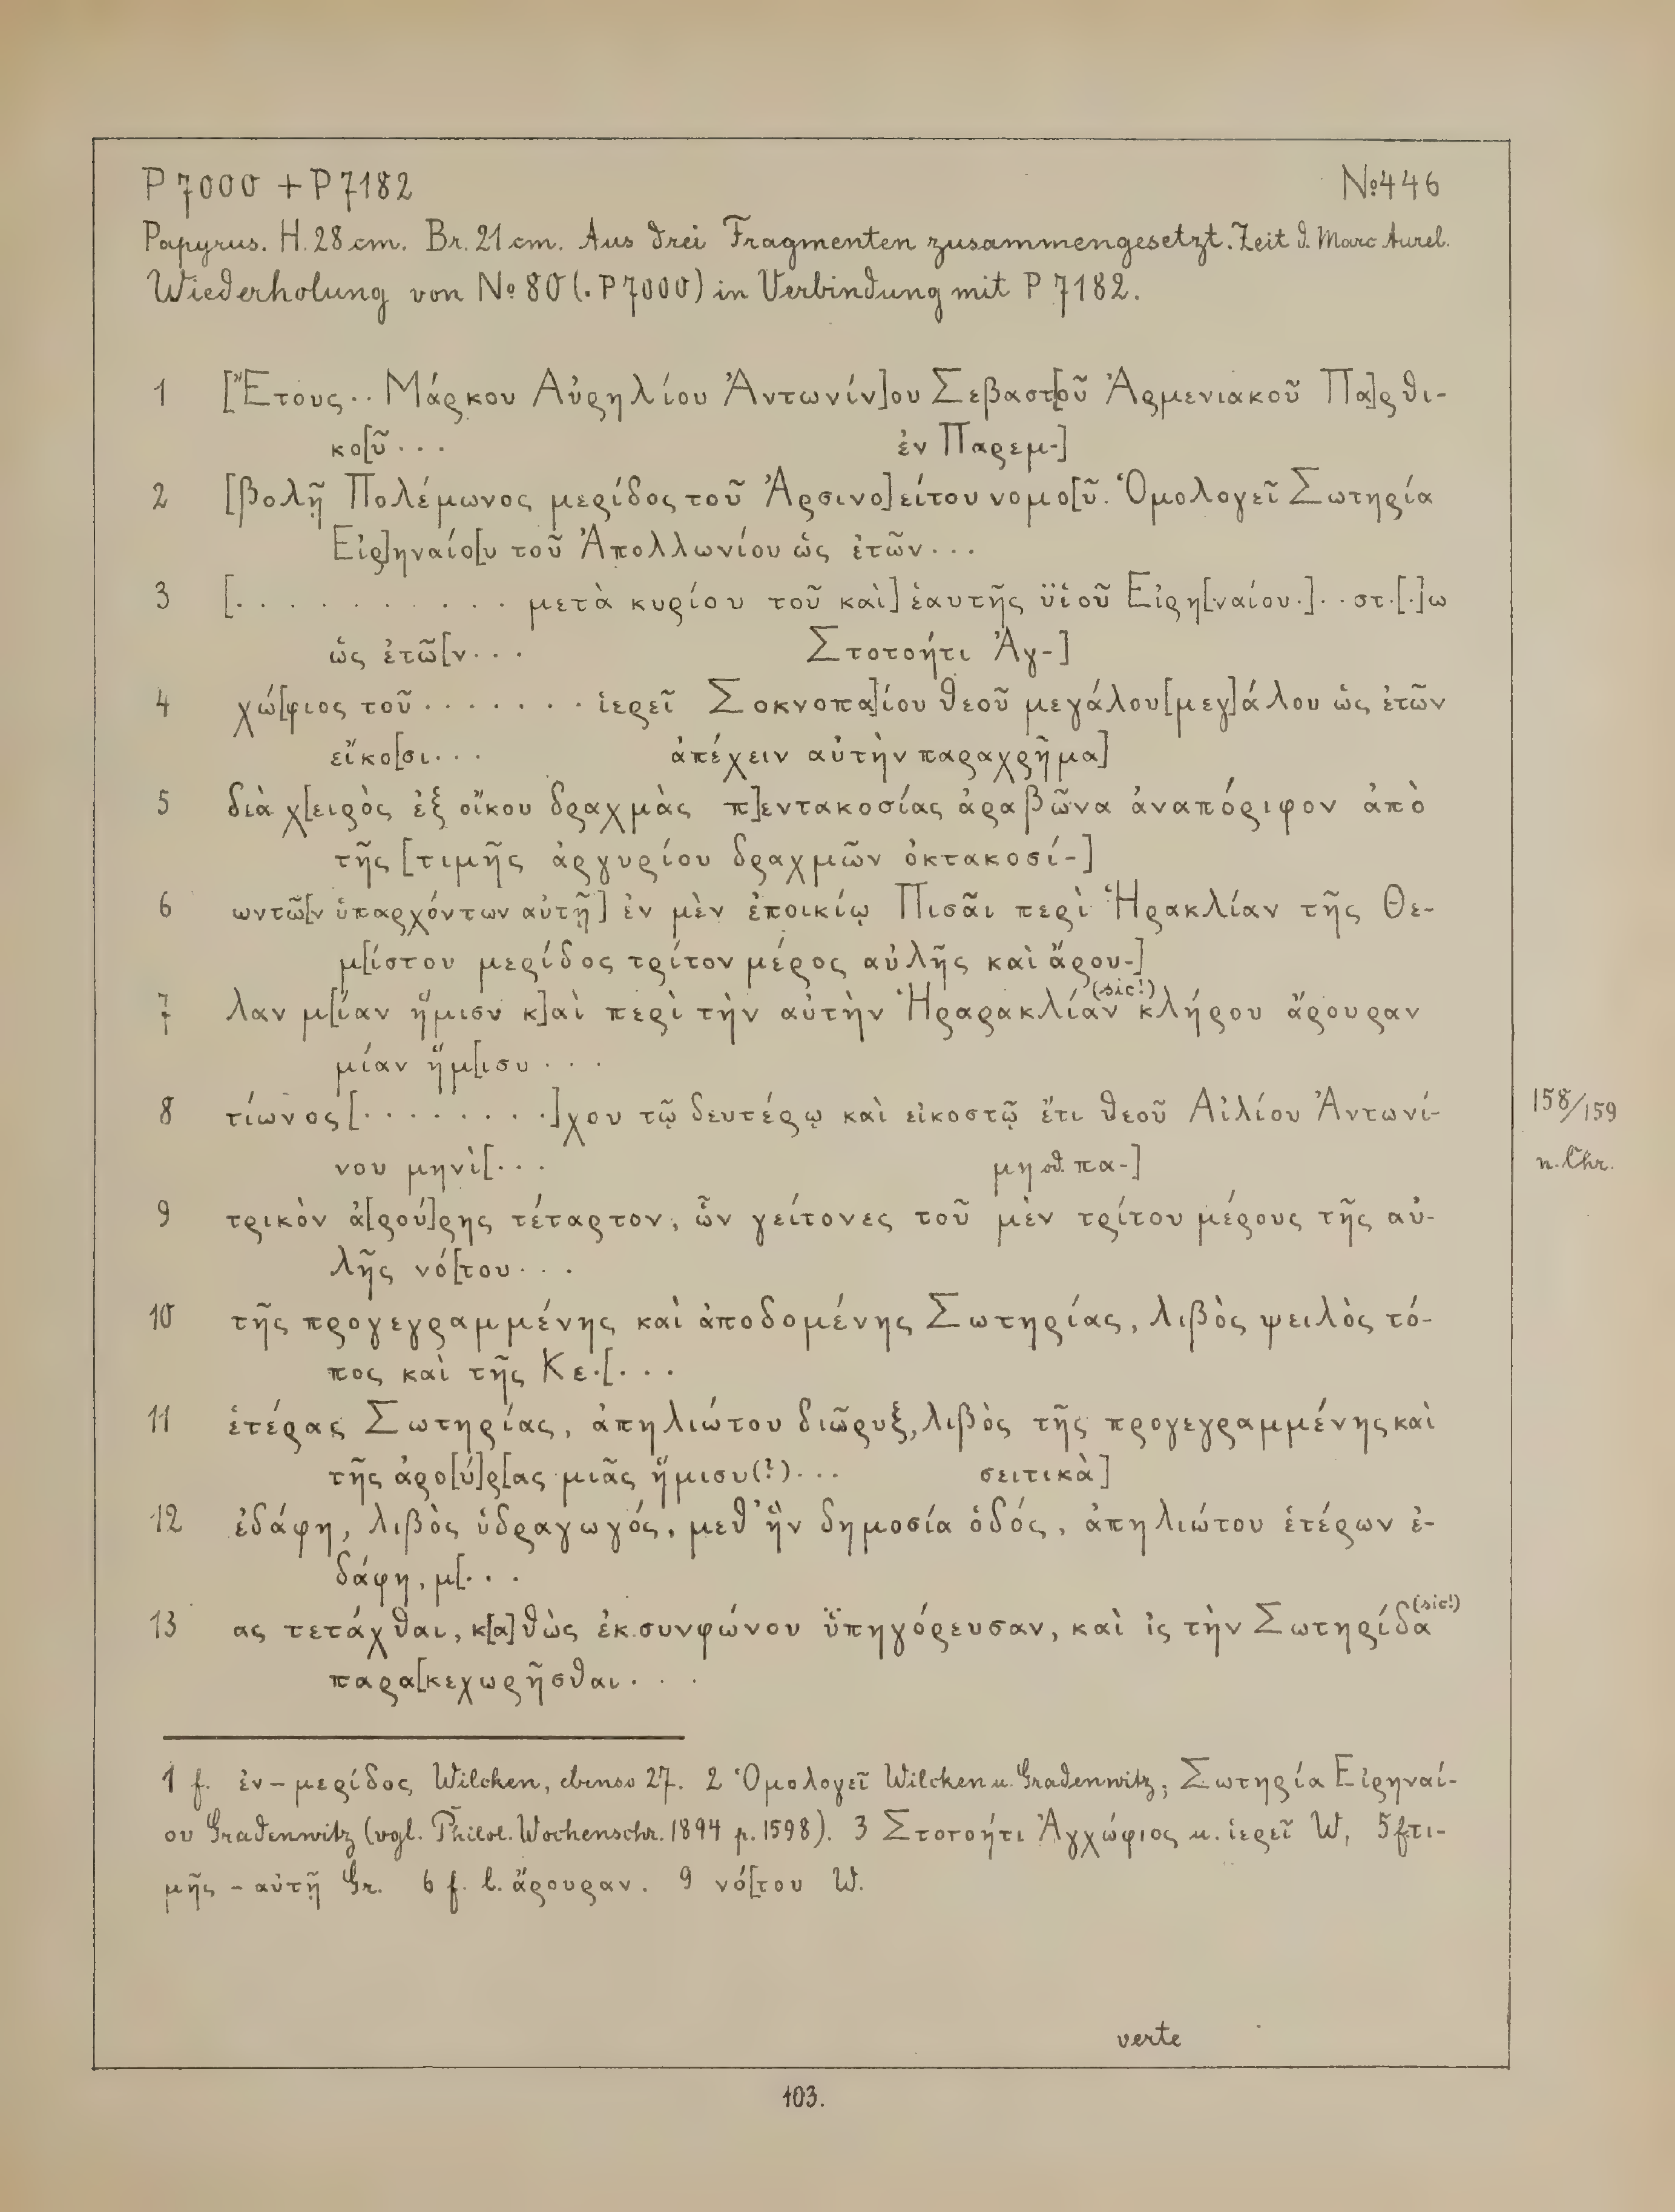 P 7000 + P 7182 No 446
Papyrus. H. 28 cm. Br. 21 cm. Aus drei Fragmenten zusammengesetzt. Zeit d. Marc Aurel.
Wiederholung von No 80 (. P 7000) in Verbindung mit P 7182.
1 [Ἔτους .. Μάρκου Αὐρηλίου Ἀντωνίν]ου Σεβαστ[οῦ Ἀρμενιακοῦ Πα]ρθι-
κο[ῦ ... ἐν Παρεμ-]
2 [βολῇ Πολέμωνος μερίδος τοῦ Ἀρσινο]είτου νομο[ῦ. Ὁμολογεῖ Σωτηρία
Εἰρ]ηναίο[υ τοῦ Ἀπολλωνίου ὡς ἐτῶν ...
3 [........... μετὰ κυρίου τοῦ καὶ] ἑαυτῆς ϋἱοῦ Εἰρη[ναίου.]..στ.[.]ω
ὡς ἐτῶ[ν ... Στοτοήτι Ἀγ-]
4 χώ[φιος τοῦ ....... ἱερεῖ Σοκνοπα]ίου θεοῦ μεγάλου [μεγ]άλου ὡς ἐτῶν
εἴκο[σι ... ἀπέχειν αὐτὴν παραχρῆμα]
5 διὰ χ[ειρὸς ἐξ οἴκου δραχμὰς π]εντακοσίας ἀραβῶνα ἀναπόριφον ἀπὸ
τῆς [τιμῆς ἀργυρίου δραχμῶν ὀκτακοσί-]
6 ωντῶ[ν ὑπαρχόντων αὐτῇ] ἐν μὲν ἐποικίῳ Πισᾶι περὶ Ἡρακλίαν τῆς Θε-
μ[ίστου μερίδος τρίτον μέρος αὐλῆς καὶ ἄρου-]
7 λαν μ[ίαν ἥμισυ κ]αὶ περὶ τὴν αὐτὴν Ἡραρακλίαν (sic!) κλήρου ἄρουραν
μίαν ἥμ[ισυ ...
8 τίωνος [.........]χου τῷ δευτέρῳ καὶ εἰκοστῷ ἔτι θεοῦ Αἰλίου Ἀντωνί-
νου μηνὶ [... μη πα-]
158/159
n. Chr.
9 τρικὸν ἀ[ρού]ρης τέταρτον, ὧν γείτονες τοῦ μὲν τρίτου μέρους τῆς αὐ-
λῆς νό[του ...
10 τῆς προγεγραμμένης καὶ ἀποδομένης Σωτηρίας, λιβὸς ψειλὸς τό-
πος καὶ τῆς Κε.[...
11 ἑτέρας Σωτηρίας, ἀπηλιώτου διῶρυξ, λιβὸς τῆς προγεγραμμένης καὶ
τῆς ἀρο[ύ]ρ[ας μιᾶς ἥμισυ (?) ... σειτικὰ]
12 ἐδάφη, λιβὸς ὑδραγωγός, μεθ' ἣν δημοσία ὁδός, ἀπηλιώτου ἑτέρων ἐ-
δάφη, μ[...
13 ας τετάχθαι, κ[α]θὼς ἐκ συνφώνου ὕπηγόρευσαν, καὶ ἰς τὴν Σωτηρίδα (sic!)
παρα[κεχωρῆσθαι ...
1 f. ἐν – μερίδος Wilcken, ebenso 27. 2 Ὁμολογεῖ Wilcken u. Gradenwitz; Σωτηρία Εἰρηναί-
ου Gradenwitz (vgl. Philol. Wochenschr. 1894 p. 1598). 3 Στοτοήτι Ἀγχώφιος u. ἱερεῖ W, 5 f τι-
μῆς – αὐτῇ Gr. 6 f. l. ἄρουραν. 9 νό[του W.
verte
103.